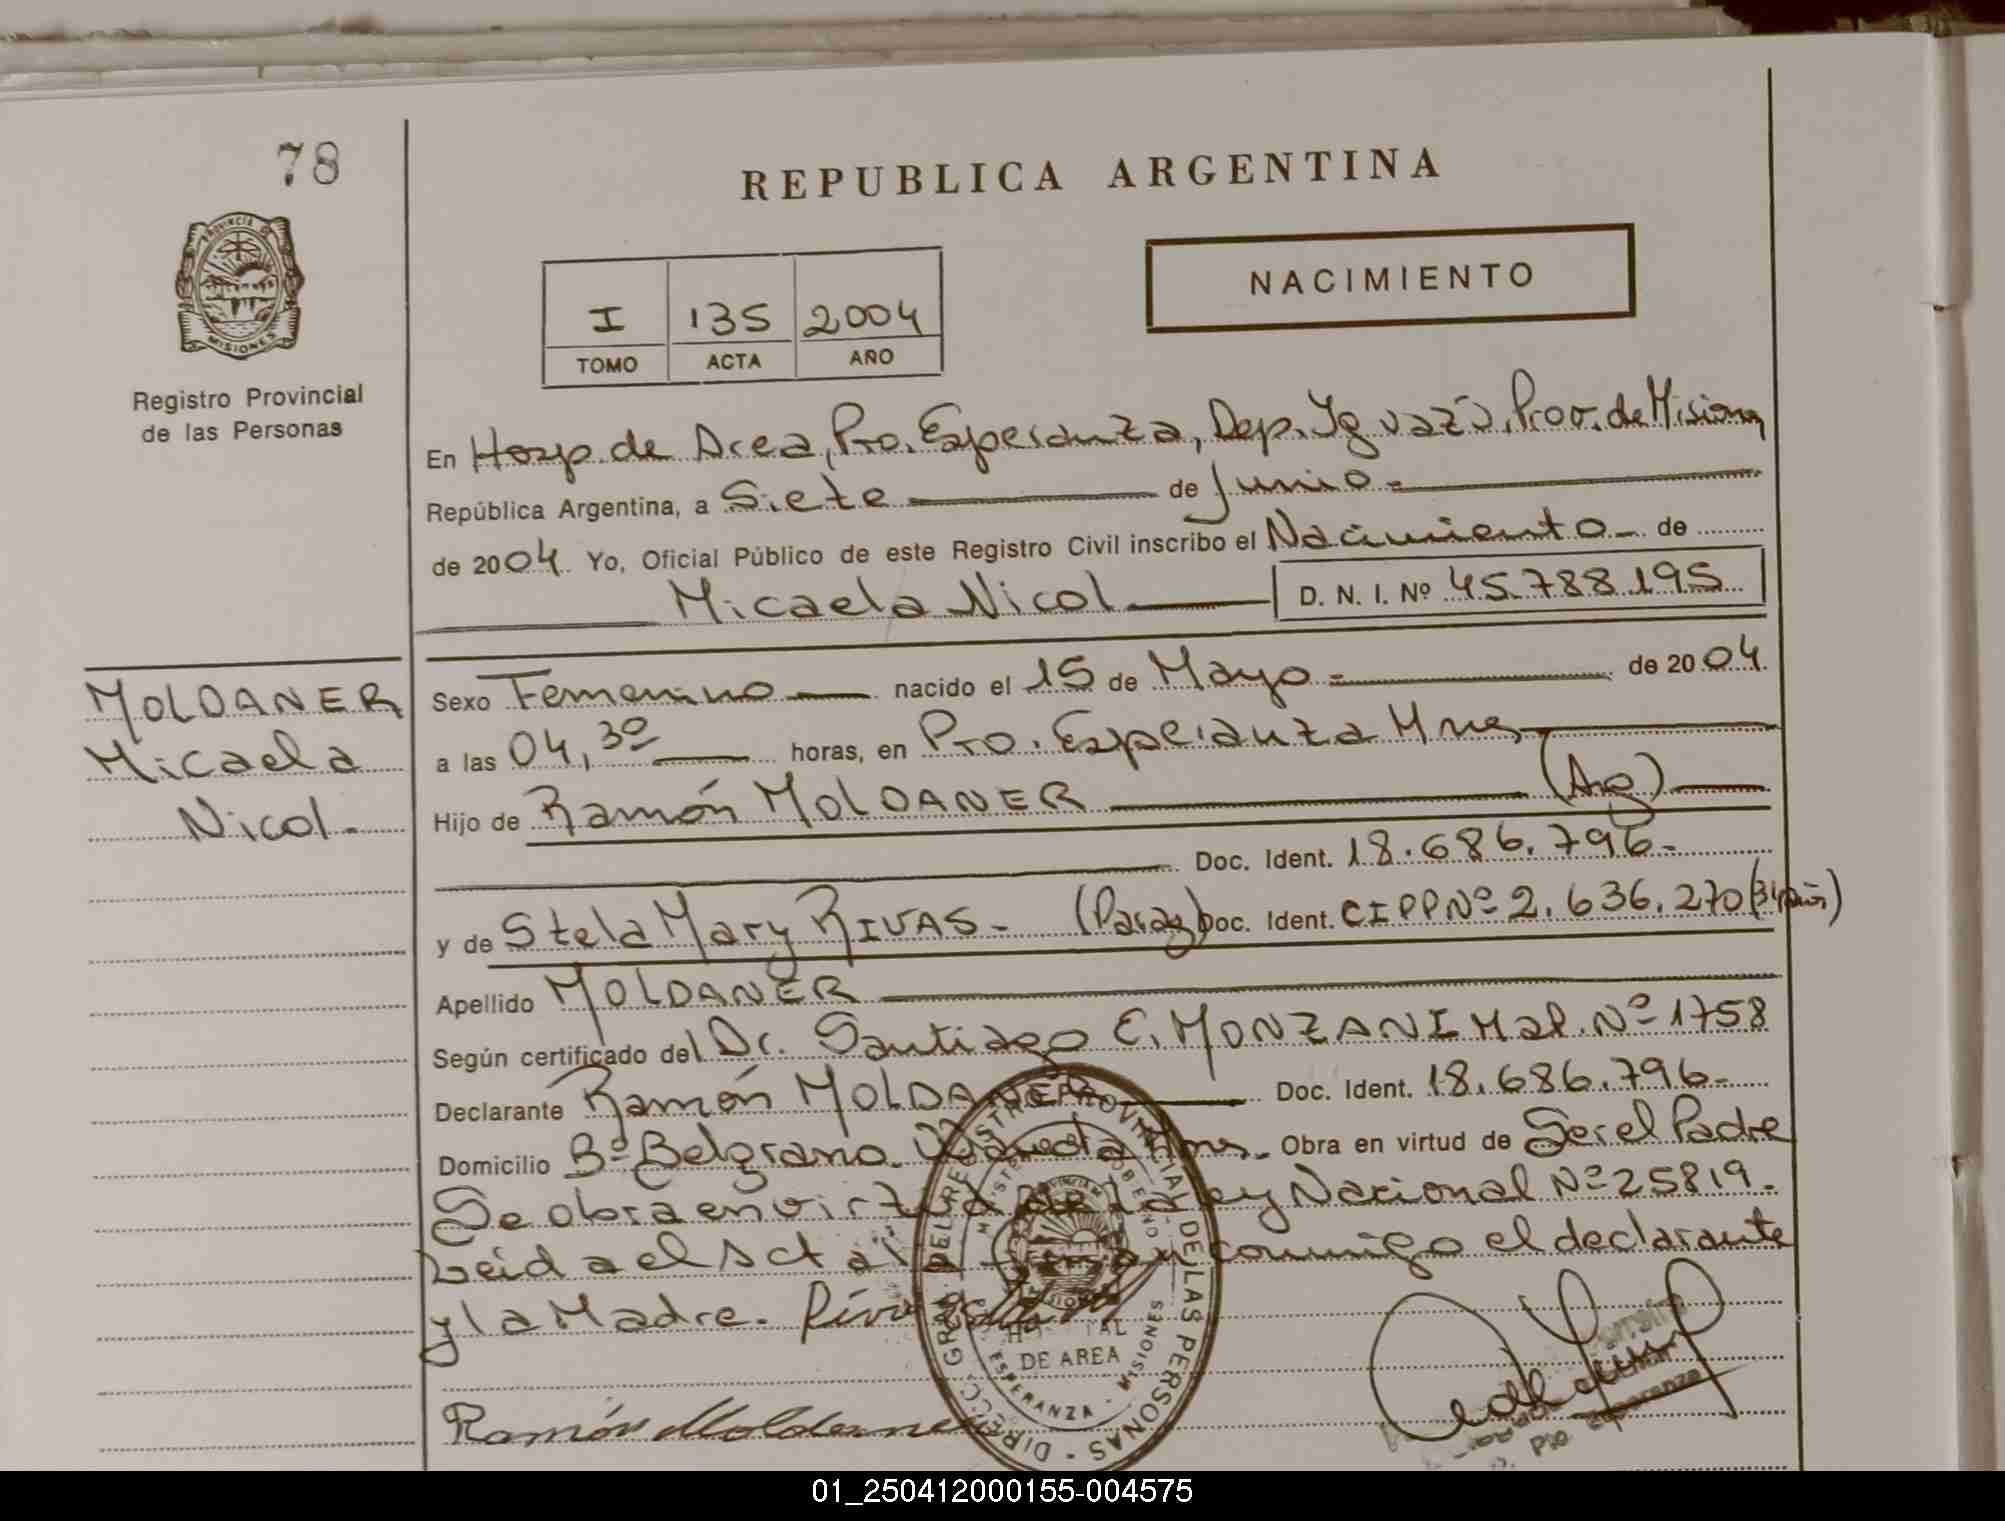 78
REPUBLICA ARGENTINA
PROVINCIA DE
MISIONES
Registro Provincial
de las Personas
NACIMIENTO
I 135 2004
TOMO ACTA AÑO
En Hosp. de Area, Pto. Esperanza, Dep. Iguazú, Prov. de Misiones
República Argentina, a Siete de Junio.-
de 2004. Yo, Oficial Público de este Registro Civil inscribo el Nacimiento de
Micaela Nicol D. N. I. Nº 45.788.195
MOLDANER
Micaela
Nicol.-
Sexo Femenino nacido el 15 de Mayo.- de 2004.
a las 04,30 horas, en Pto. Esperanza Mnes
Hijo de Ramón MOLDANER (Arg)
Doc. Ident. 18.686.796.-
y de Stela Mary RIVAS - (Parag) Doc. Ident. CIPPNº 2.636.270 (34 años)
Apellido MOLDANER
Según certificado del Dr. Santiago E. MONZANI Mat. Nº 1758
Declarante Ramón MOLDANER Doc. Ident. 18.686.796.-
Domicilio Bº Belgrano. Wanda Mnes. Obra en virtud de Ser el Padre
Se obra en virtud de la Ley Nacional Nº 25819.
Leida el Acta la conmigo el declarante
y la Madre.
Ramón Moldaner
DIRECC. GRAL. DEL REGISTRO PROVINCIAL DE LAS PERSONAS
HOSPITAL
DE AREA
ESPERANZA - MISIONES
01_250412000155-004575